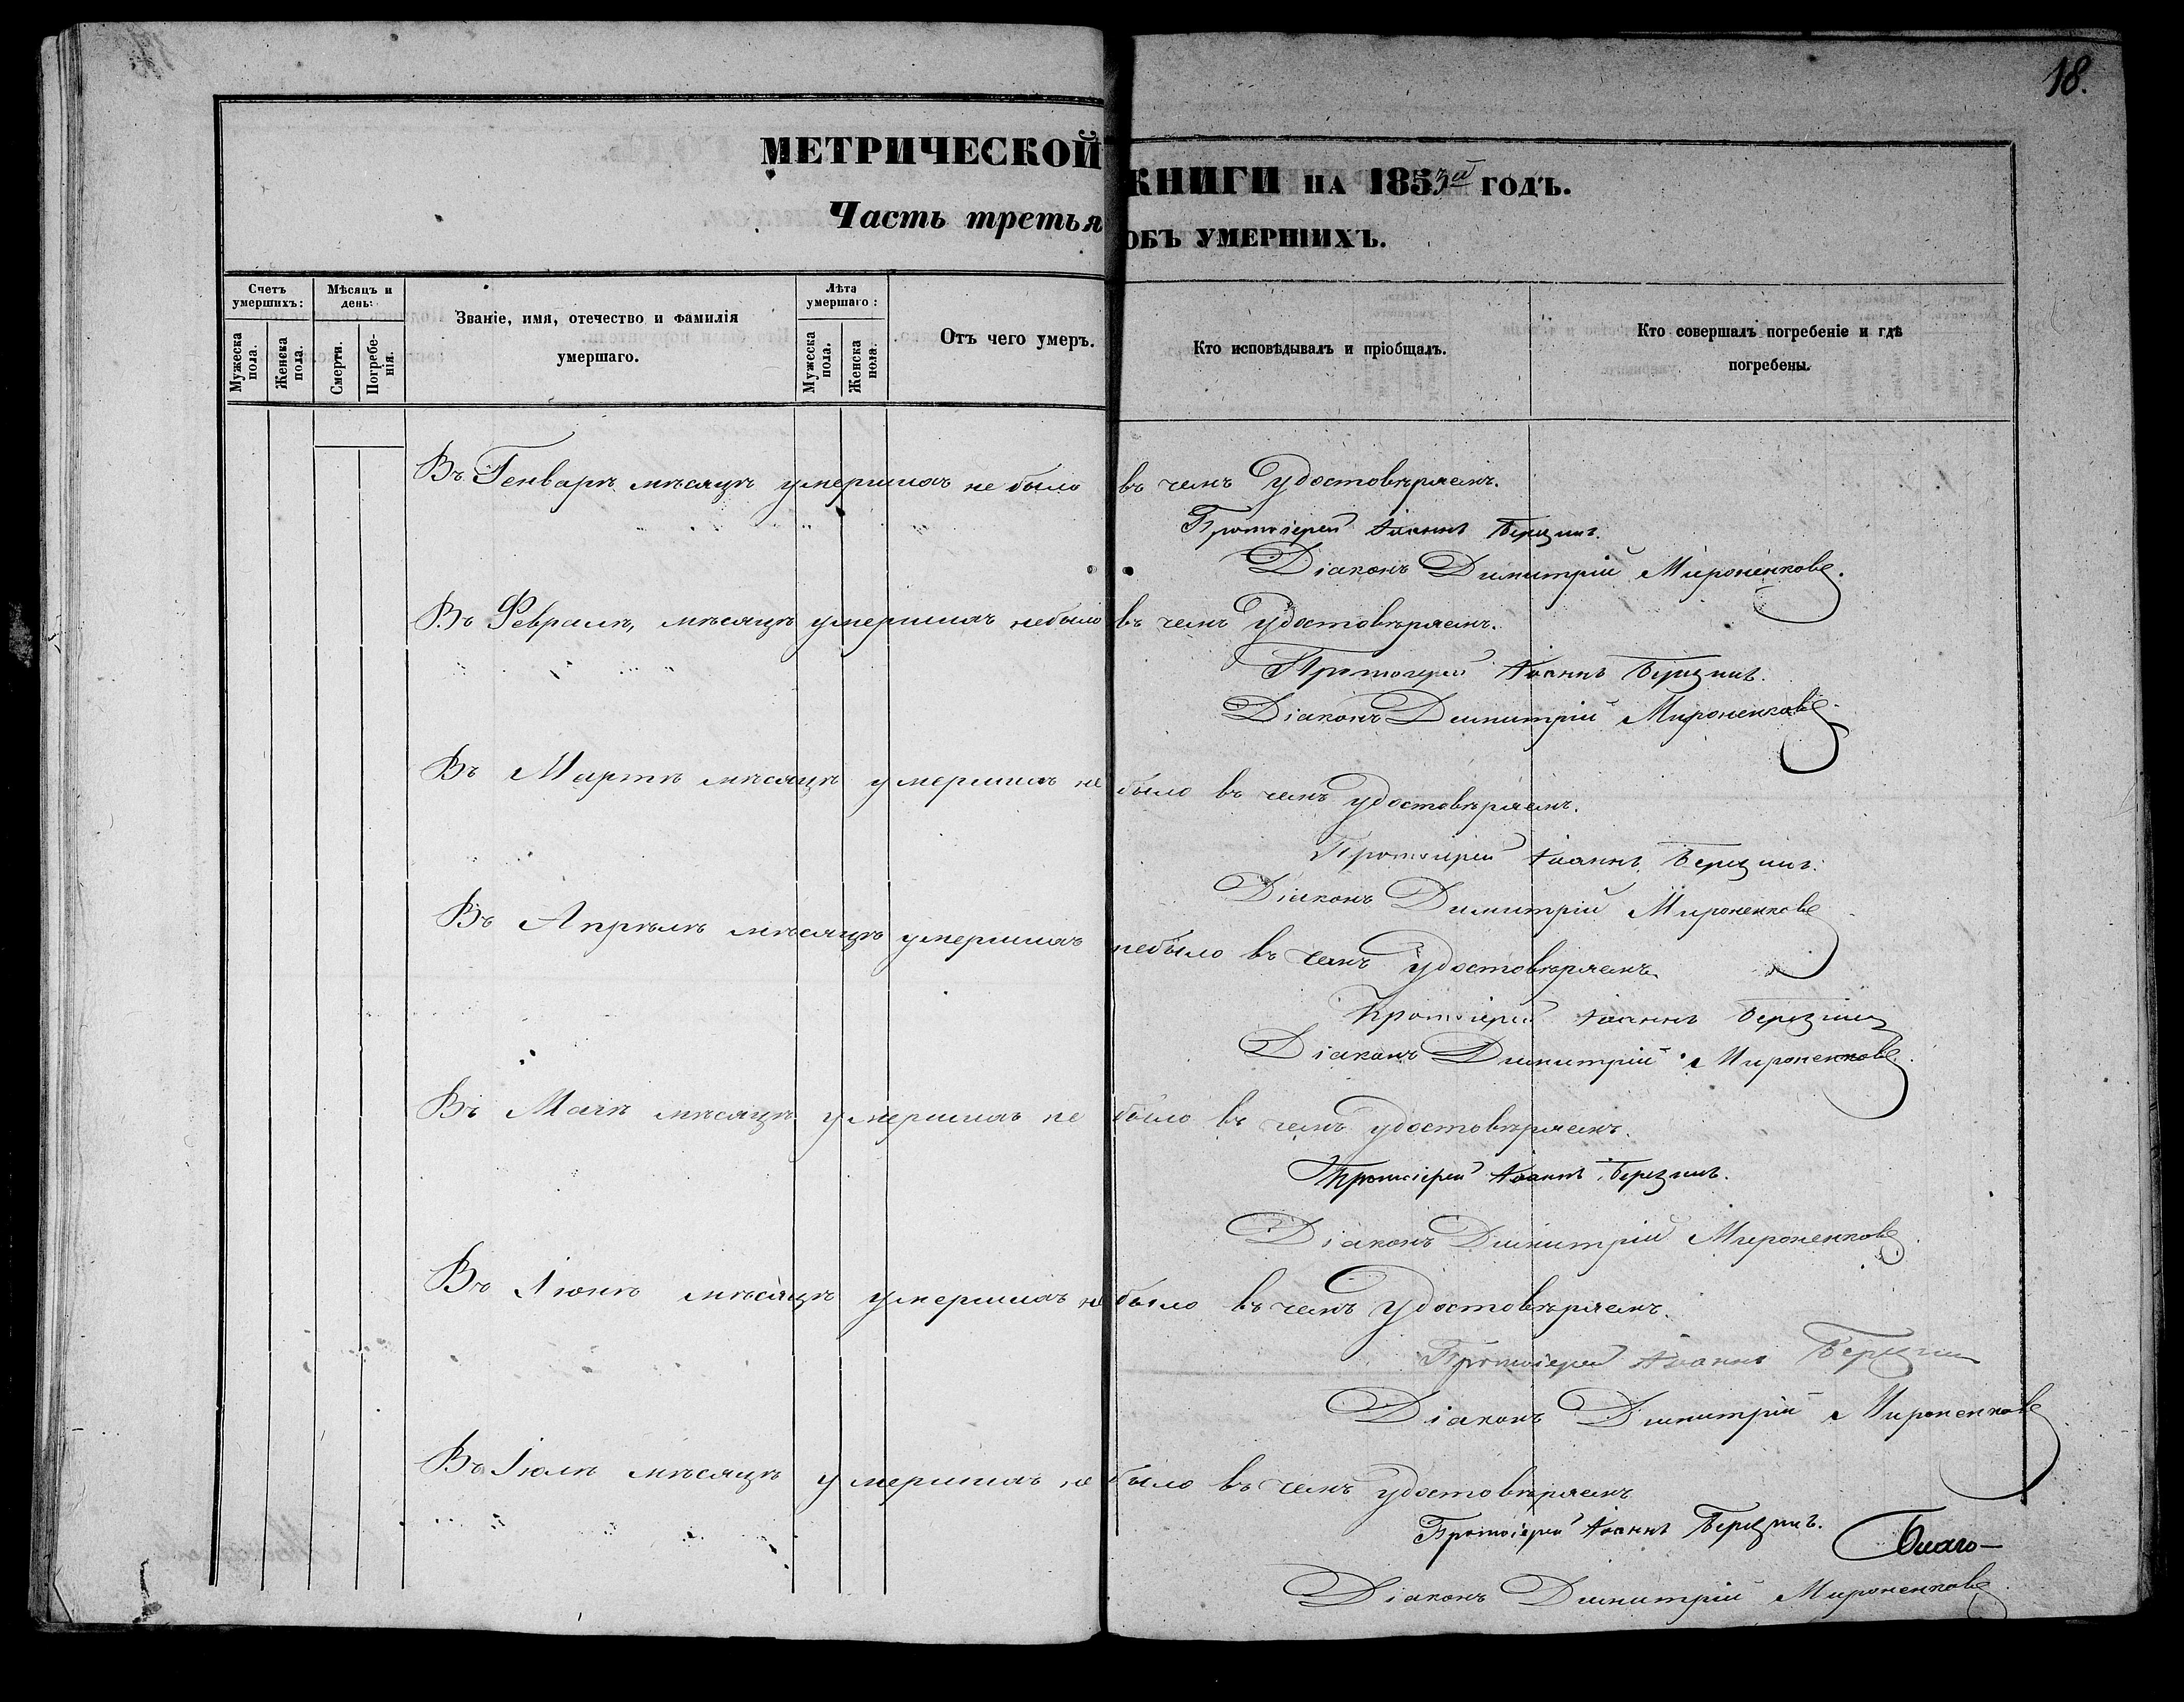 18.
МЕТРИЧЕСКОЙ КНИГИ НА 1853й ГОДЪ.
Часть третья ОБЪ УМЕРШИХЪ.
Счетъ умершихъ:
Мужеска пола.
Женска пола.
Мѣсяцъ и день:
Смерти.
Погребенія.
Званіе, имя, отечество и фамилія умершаго.
Лѣта умершаго:
Мужеска пола.
Женска пола.
Отъ чего умеръ.
Кто исповѣдывалъ и пріобщалъ.
Кто совершалъ погребеніе и гдѣ погребены.
Въ Генварѣ мѣсяцѣ умершихъ не было въ чемъ удостовѣряемъ.
Протоіерей Іоаннъ Березинъ.
Діаконъ Димитрій Мироненковъ.
Въ Февралѣ, мѣсяцѣ умершихъ небыло въ чемъ удостовѣряемъ.
Протоіерей Іоаннъ Березинъ.
Діаконъ Димитрій Мироненковъ
Въ Мартѣ мѣсяцѣ умершихъ не было въ чемъ удостовѣряемъ.
Протоіерей Іоаннъ Березинъ.
Діаконъ Димитрій Мироненковъ
Въ Апрѣлѣ мѣсяцѣ умершихъ небыло въ чемъ удостовѣряемъ.
Протоіерей Іоаннъ Березинъ
Діаконъ Димитрій Мироненковъ.
Въ Маіѣ мѣсяцѣ умершихъ не было въ чемъ удостовѣряемъ.
Протоіерей Іоаннъ Березинъ.
Діаконъ Димитрій Мироненковъ.
Въ Іюнѣ мѣсяцѣ умершихъ не было въ чемъ удостовѣряемъ.
Протоіерей Іоаннъ Березинъ
Діаконъ Димитрій Мироненковъ
Въ Іюлѣ мѣсяцѣ умершихъ не было въ чемъ удостовѣряемъ
Протоіерей Іоаннъ Березинъ.
Благо-
Діаконъ Димитрій Мироненковъ.